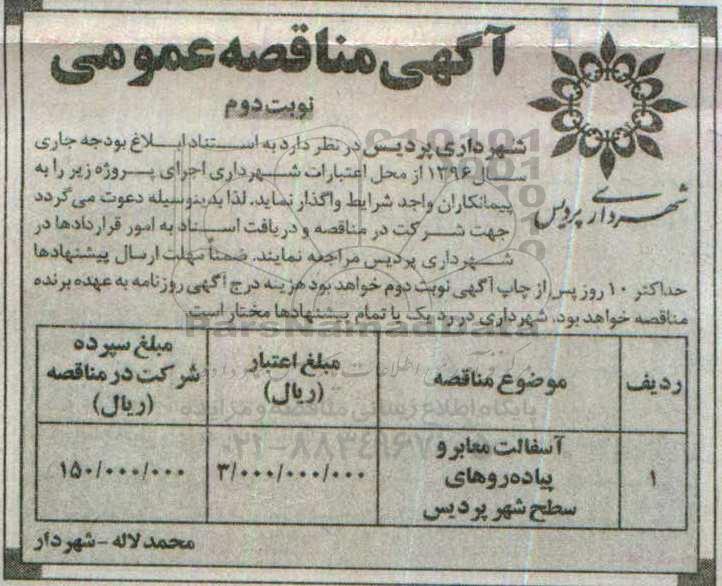 آگهی مناقصه عمومی
نوبت دوم
شهرداری پردیس
شهرداری پردیس در نظر دارد به استناد ابلاغ بودجه جاری
سال ۱۳۹۶ از محل اعتبارات شهرداری اجرای پروژه زیر را به
پیمانکاران واجد شرایط واگذار نماید. لذا بدینوسیله دعوت می گردد
جهت شرکت در مناقصه و دریافت اسناد به امور قراردادها در
شهرداری پردیس مراجعه نمایند. ضمناً مهلت ارسال پیشنهادها
حداکثر ۱۰ روز پس از چاپ آگهی نوبت دوم خواهد بود هزینه درج آگهی روزنامه به عهده برنده
مناقصه خواهد بود. شهرداری در رد یک یا تمام پیشنهادها مختار است.
ParsNamadData
پایگاه اطلاع رسانی مناقصه و مزایده
ردیف
موضوع مناقصه
مبلغ اعتبار
(ریال)
مبلغ سپرده
شرکت در مناقصه
(ریال)
۱
آسفالت معابر و
پیاده‌روهای
سطح شهر پردیس
۳/۰۰۰/۰۰۰/۰۰۰
۱۵۰/۰۰۰/۰۰۰
محمد لاله - شهردار